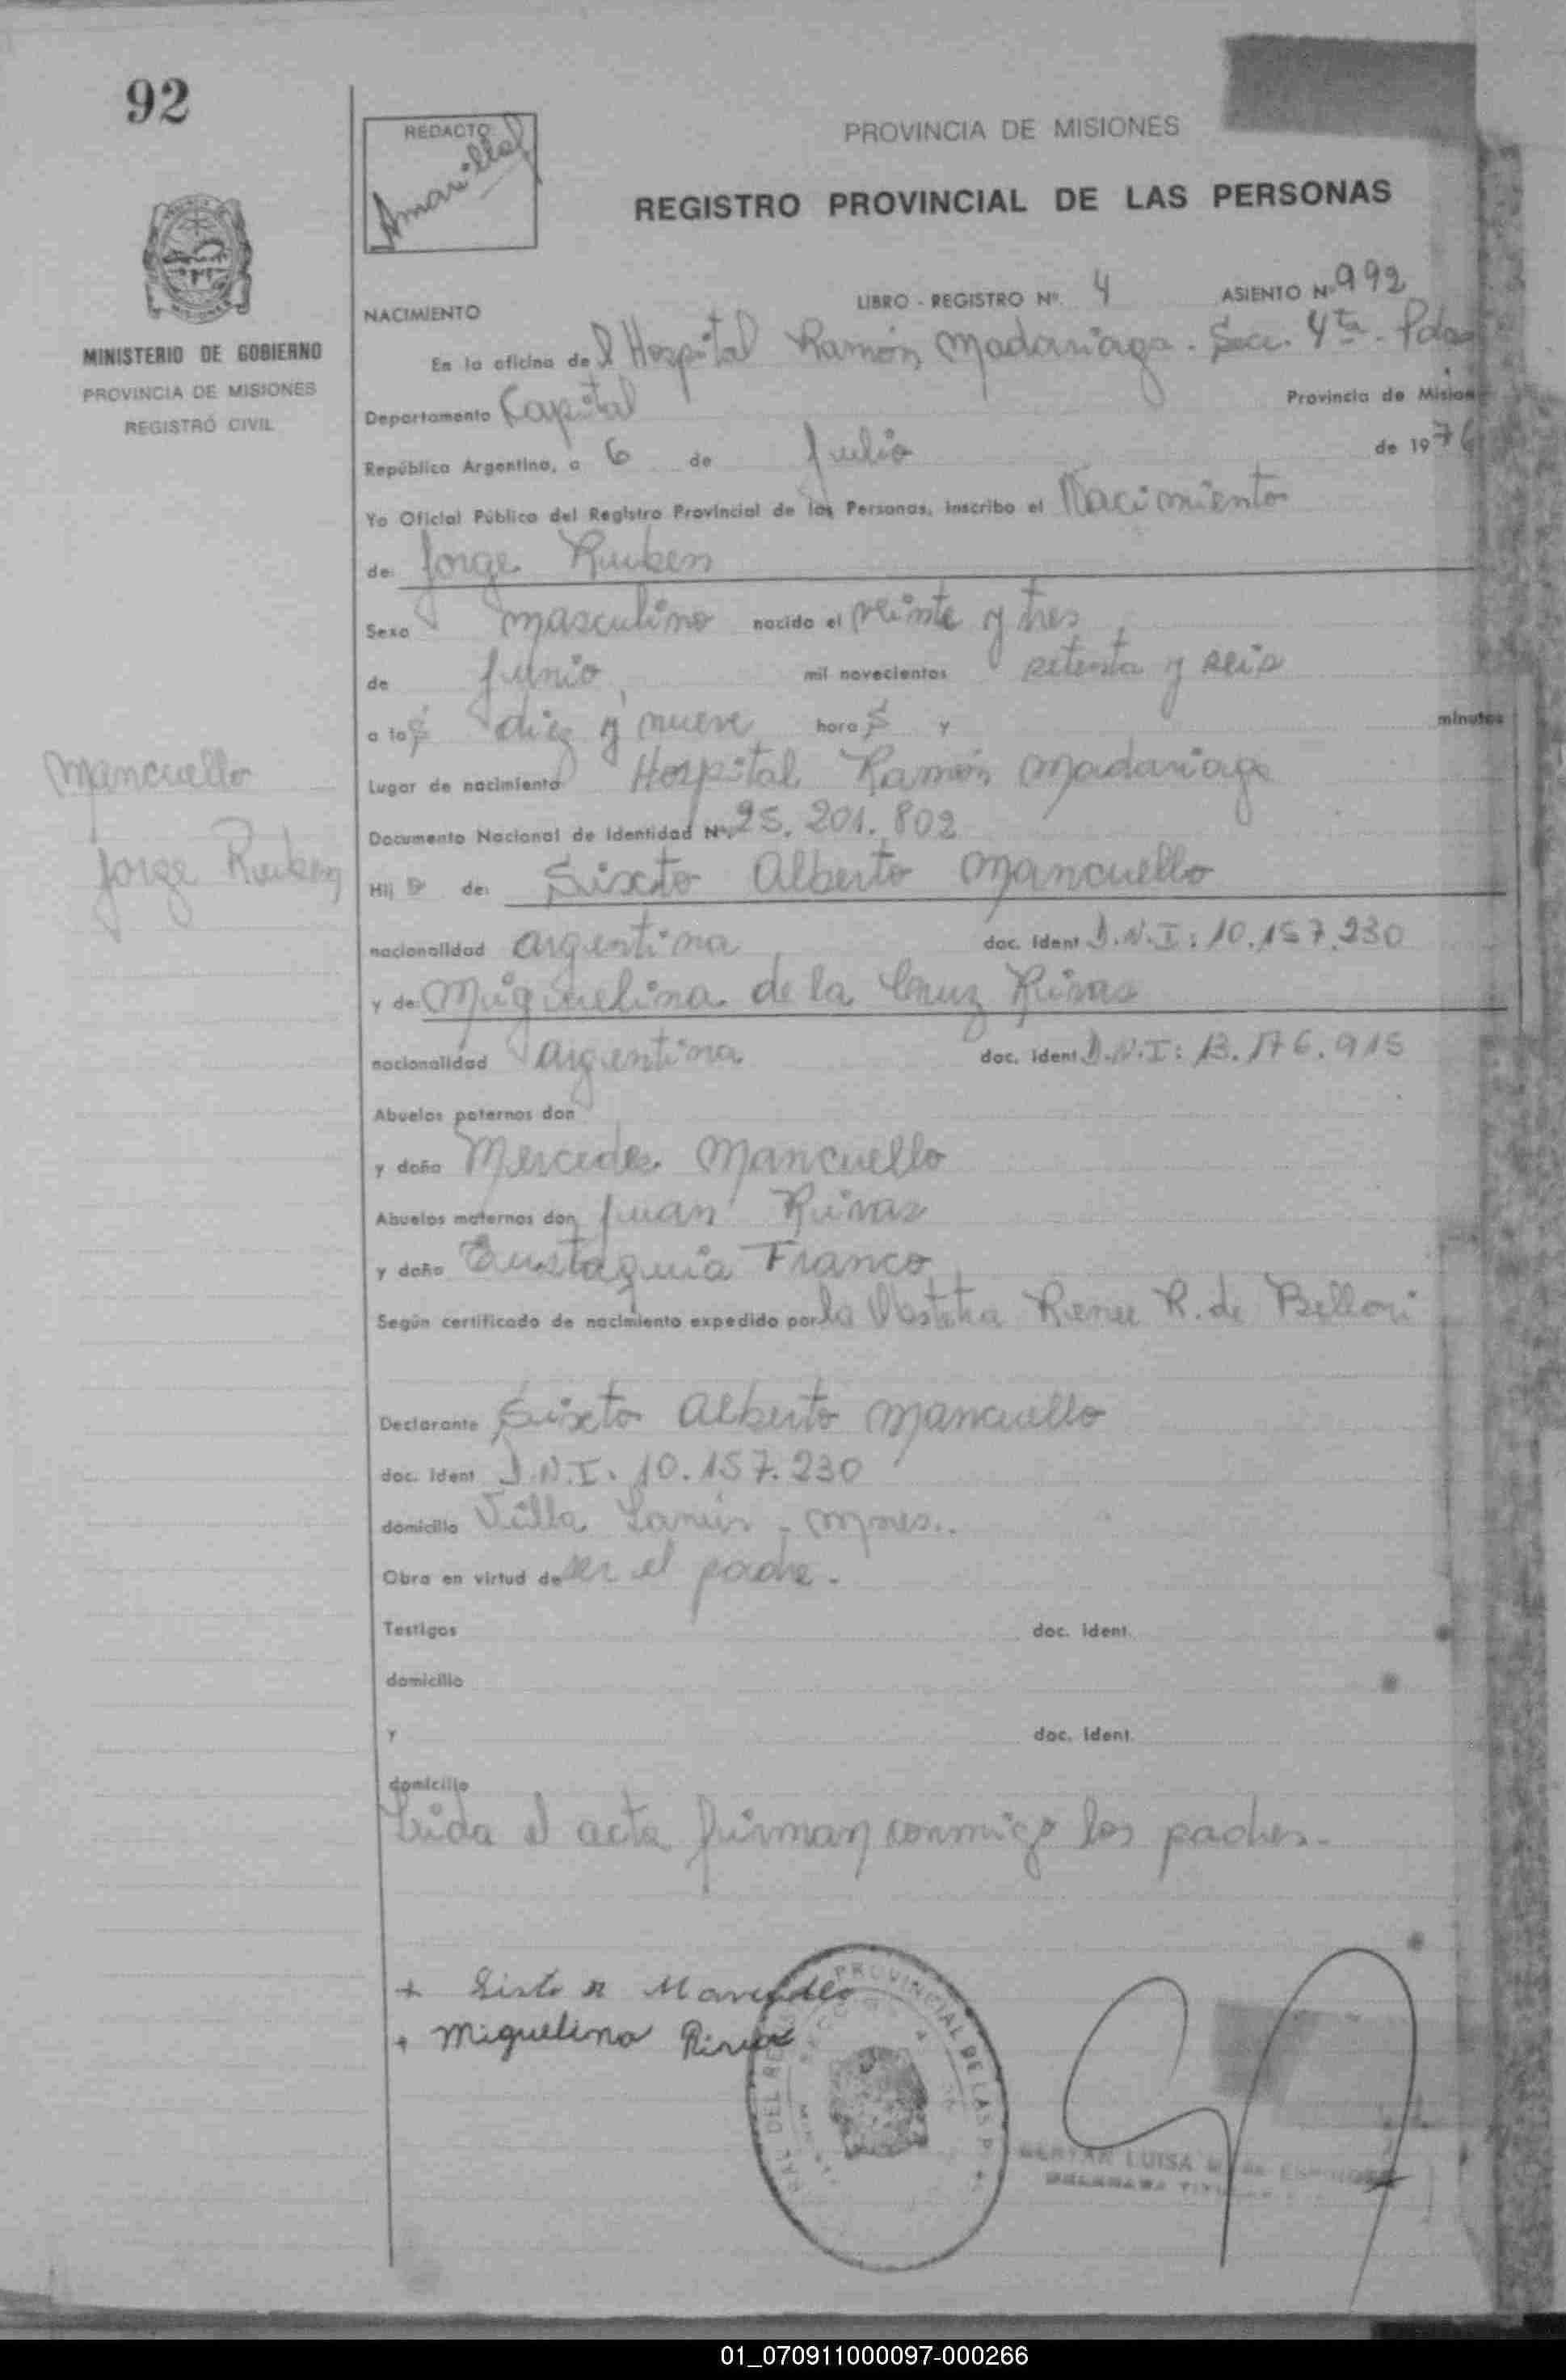 92
REDACTO
Amarilla
PROVINCIA DE MISIONES
REGISTRO PROVINCIAL DE LAS PERSONAS
MINISTERIO DE GOBIERNO
PROVINCIA DE MISIONES
REGISTRO CIVIL
NACIMIENTO
LIBRO - REGISTRO Nº. 4 ASIENTO Nº 992
En la oficina del Hospital Ramón Madariaga. Secc. 4ta. Pdas
Departamento Capital Provincia de Mision
República Argentina, a 6 de Julio de 1976
Yo Oficial Público del Registro Provincial de las Personas, inscribo el Nacimiento
de: Jorge Ruben
Sexo masculino nacido el veinte y tres
de Junio, mil novecientos setenta y seis
a las diez y nueve horas y minutos
Lugar de nacimiento Hospital Ramón Madariaga
Mancuello
Jorge Ruben
Documento Nacional de Identidad Nº. 25.201.802
Hijo de: Sixto Alberto Mancuello
nacionalidad argentina doc. ident D.N.I: 10.157.230
y de: Miguelina de la Cruz Rivas
nacionalidad argentina doc. ident D.N.I: 13.176.915
Abuelos paternos don
y doña Mercedes Mancuello
Abuelos maternos don Juan Rivas
y doña Eustaquia Franco
Según certificado de nacimiento expedido por la Renee R. de Belloni
Declarante Sixto Alberto Mancuello
doc. ident D.N.I. 10.157.230
domicilio Villa Lanús - Mnes.
Obra en virtud de ser el padre.
Testigos doc. ident.
domicilio
y doc. ident.
domicilio
Leida el acta firman conmigo los padres.
+ Sisto A Mancuello
+ Miguelina Rivas
PROVINCIAL DE LAS P
DEL RE
LUISA
01_070911000097-000266